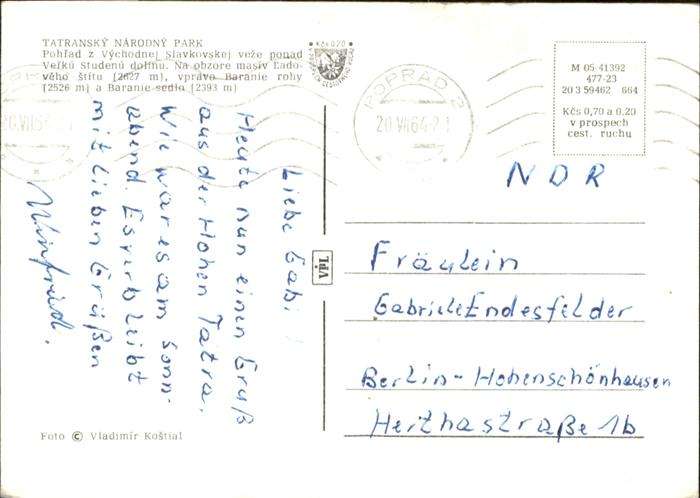 TATRANSKÝ NÁRODNÝ PARK
Pohľad z Východnej Slavkovskej veže ponad
Veľkú Studenú dolinu. Na obzore masív Ľado-
vého štítu (2627 m), vpravo Baranie rohy
(2526 m) a Baranie sedlo (2393 m)
Kčs 0,20
POPRAD 2
20.VII.64-21
M 05-41392
477-23
20 3 59462 664
Kčs 0,70 a 0,20
v prospech
cest. ruchu
20.VII.64-21
Liebe Gabi!
Heute nun einen Gruß
aus der Hohen Tatra.
Wie war es am Sonn-
abend. Es verbleibt
mit lieben Grüßen
Winfried.
NDR
Fräulein
Gabriele Endesfelder
Berlin-Hohenschönhausen
Herthastraße 1b
VPL
Foto © Vladimír Koštial